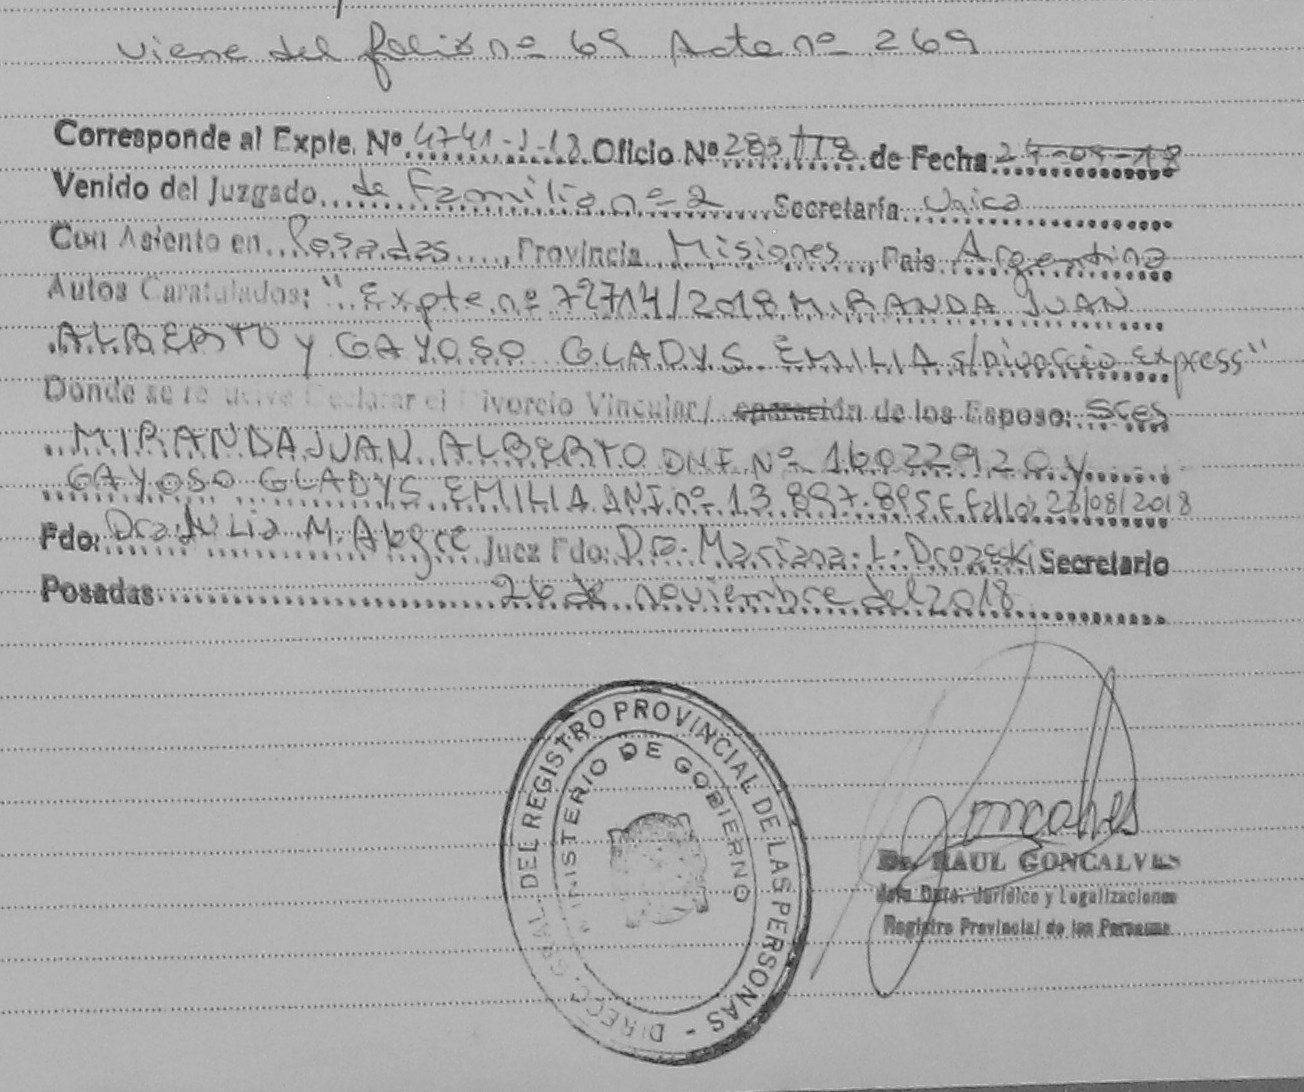 Viene del folio nº 69 Acta nº 269
Corresponde al Expte. Nº 4741-J-18 Oficio Nº 285/18 de Fecha 24-09-18
Venido del Juzgado de Familia nº 2 Secretaría Unica
Con Asiento en Posadas, Provincia Misiones, Pais Argentina
Autos Caratulados: "Expte. nº 72714/2018 MIRANDA JUAN
ALBERTO y GAYOSO GLADYS EMILIA s/Divorcio Express"
Donde se resuelve Declarar el Divorcio Vincular/ eparación de los Esposo: Sres
MIRANDA JUAN ALBERTO DNI Nº 16022920 y
GAYOSO GLADYS EMILIA DNI nº 13.897.895 F. Fallo: 28/08/2018
Fdo: Dra Julia M. Alegre Juez Fdo: Dra. Mariana L. Drozeski Secretario
Posadas 26 de noviembre del 2018
DIRECC. GRAL. DEL REGISTRO PROVINCIAL DE LAS PERSONAS -
MINISTERIO DE GOBIERNO
Goncalves
Dr. RAUL GONCALVES
Jefe Dpto. Jurídico y Legalizaciones
Registro Provincial de las Personas